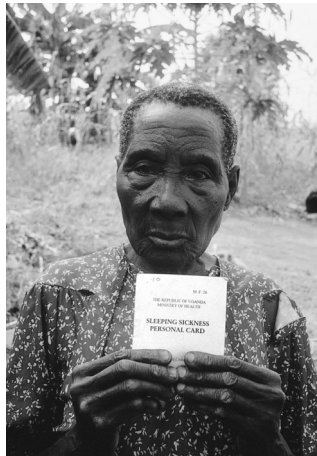 THE REPUBLIC OF UGANDA
MINISTRY OF HEALTH
SLEEPING SICKNESS
PERSONAL CARD